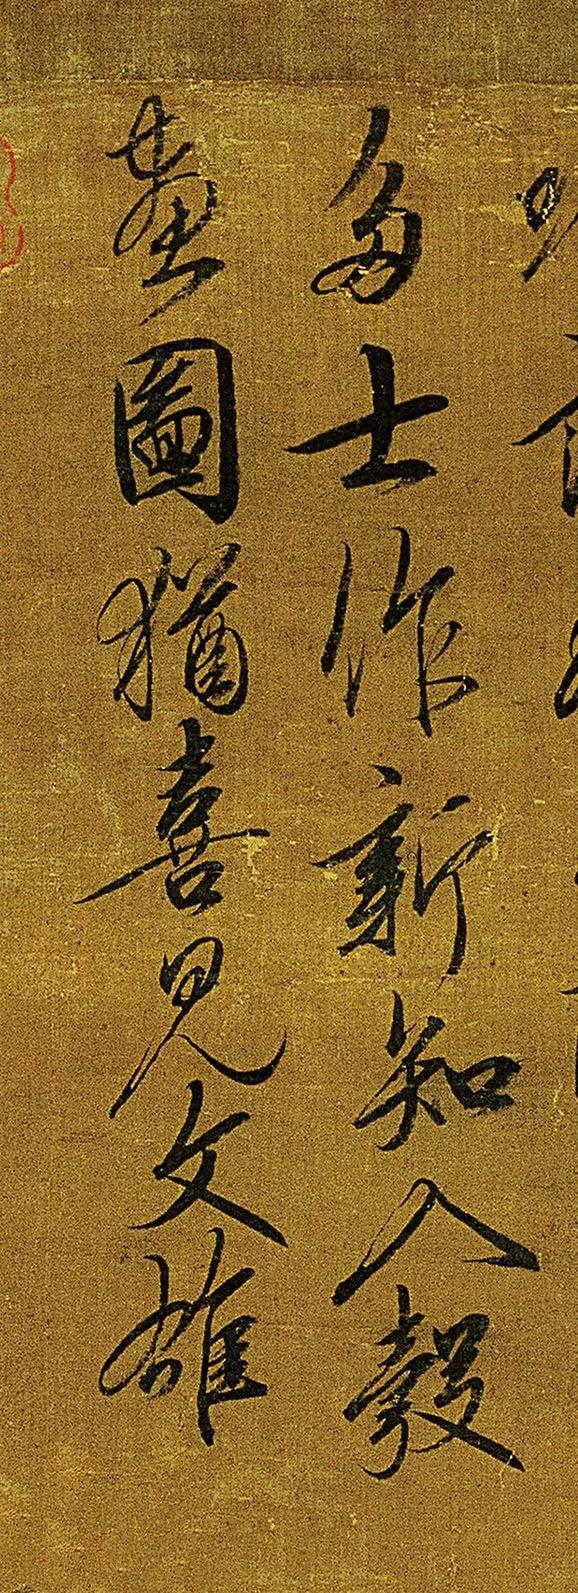 多士作新知入彀
畫圖猶喜見文雄